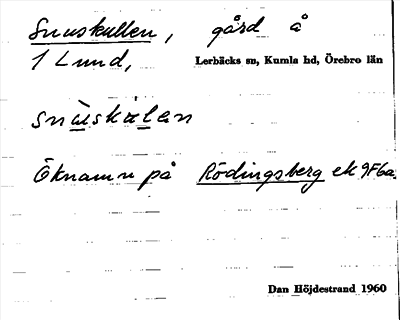 Snuskullen, gård å
1 Lund, Lerbäcks sn, Kumla hd, Örebro län
snùskàlan
Öknamn på Rödingsberg ek 9F6a.
Dan Höjdestrand 1960